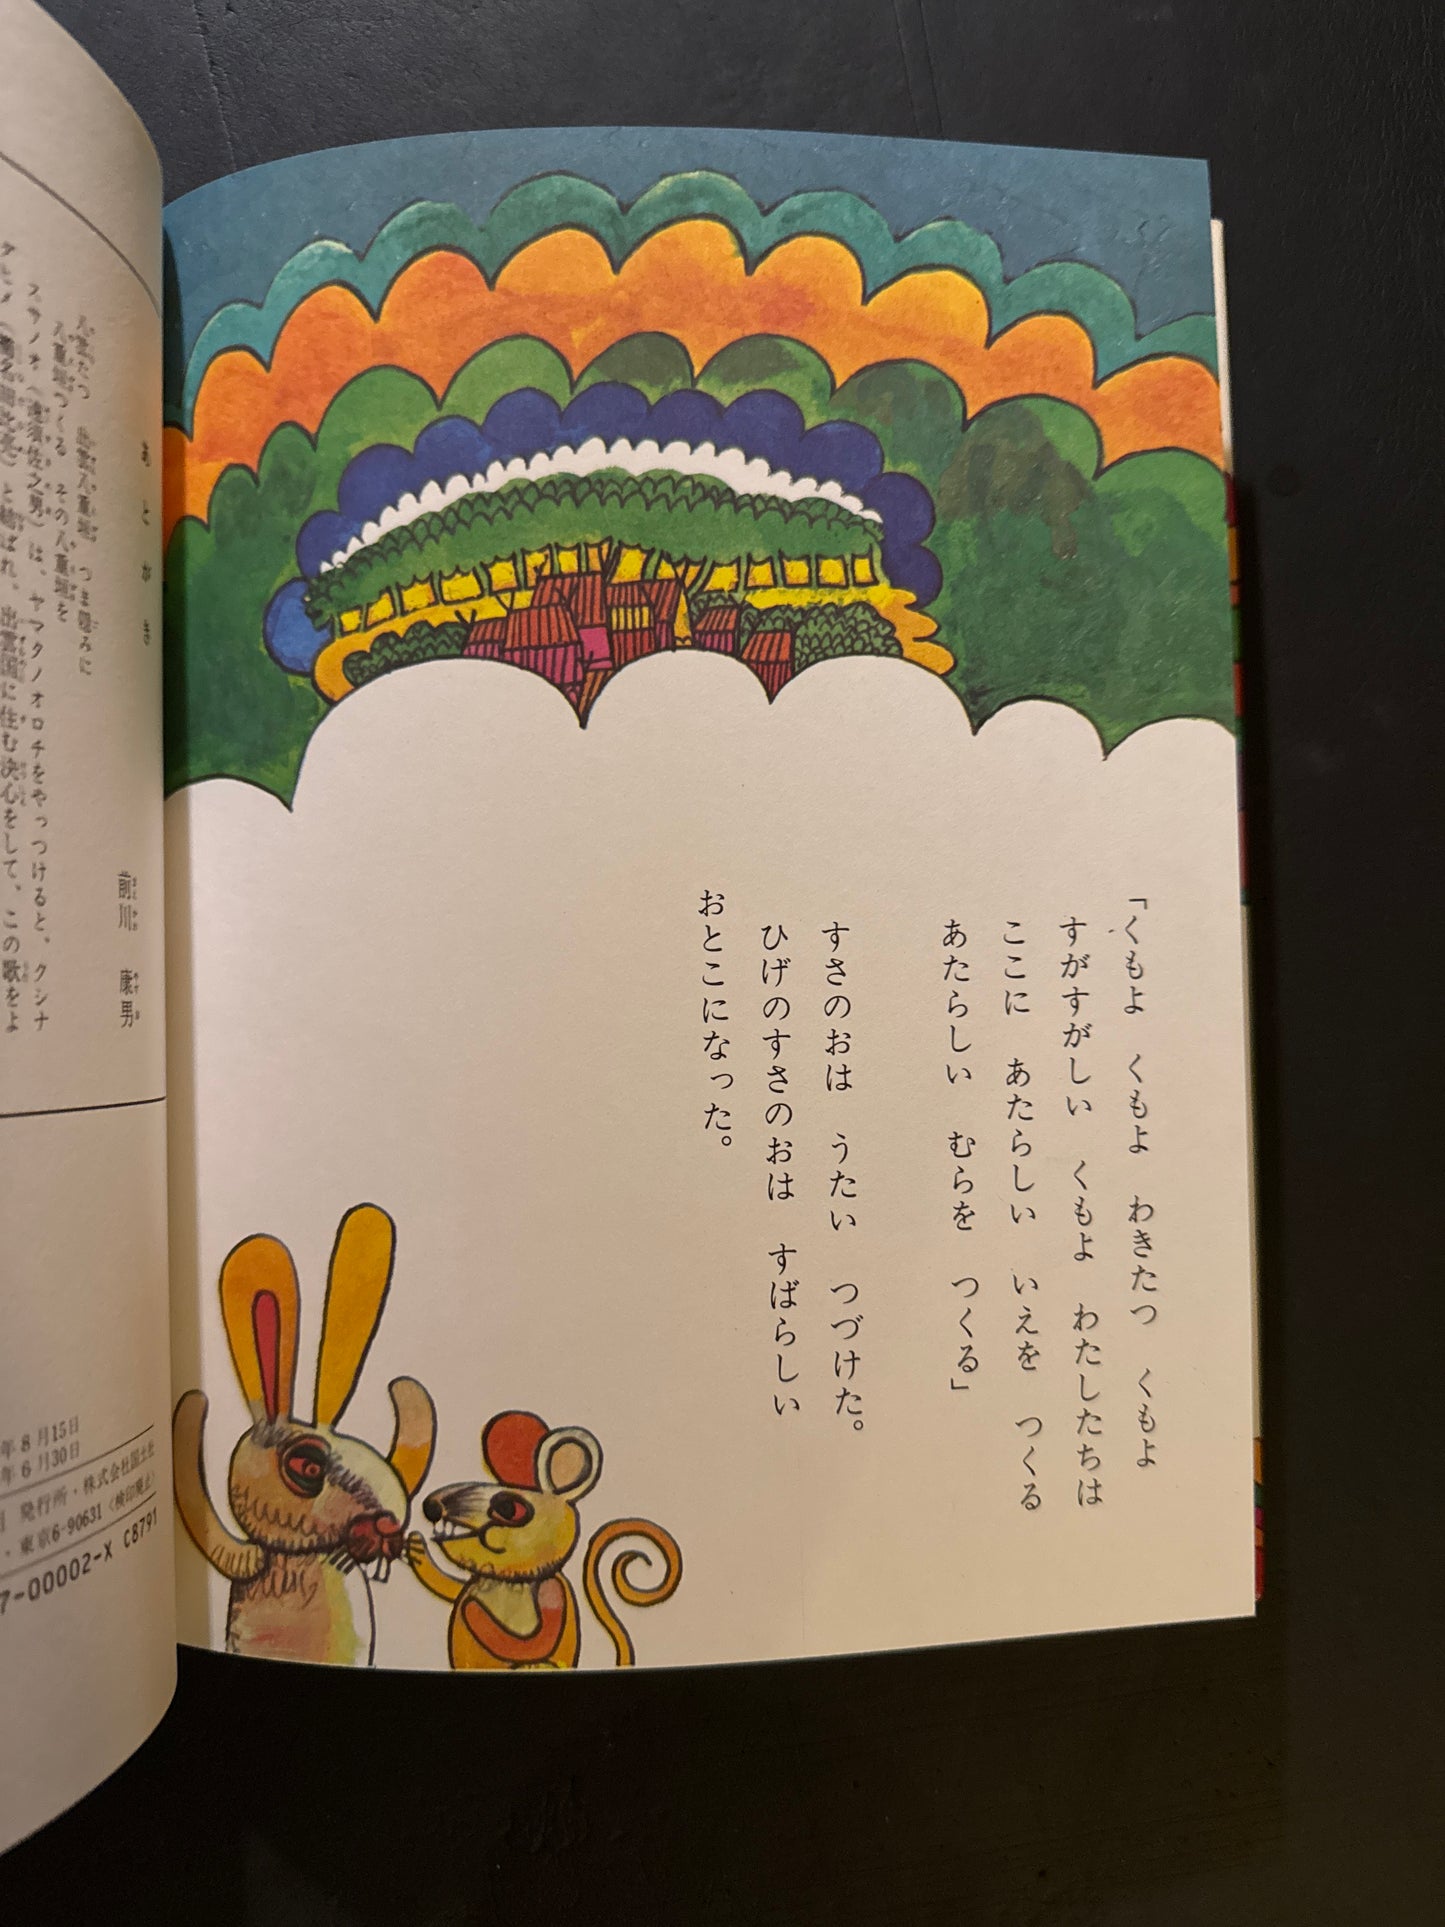 「くもよ　くもよ　わきたつ　くもよ
すがすがしい　くもよ　わたしたちは
ここに　あたらしい　いえを　つくる
あたらしい　むらを　つくる」
すさのおは　うたい　つづけた。
ひげのすさのおは　すばらしい
おとこになった。
あとがき
前川　康男
まえかわ　やすお
つま籠みに
八重垣つくる　その八重垣を
スサノオ（速須佐之男）は、ヤマタノオロチをやっつけると、クシナ
と結ばれ、出雲国に住む決心をして、この歌をよ
年8月15日
年6月30日
発行所・株式会社国土社
・東京6-90631〈検印廃止〉
7-00002-X C8791